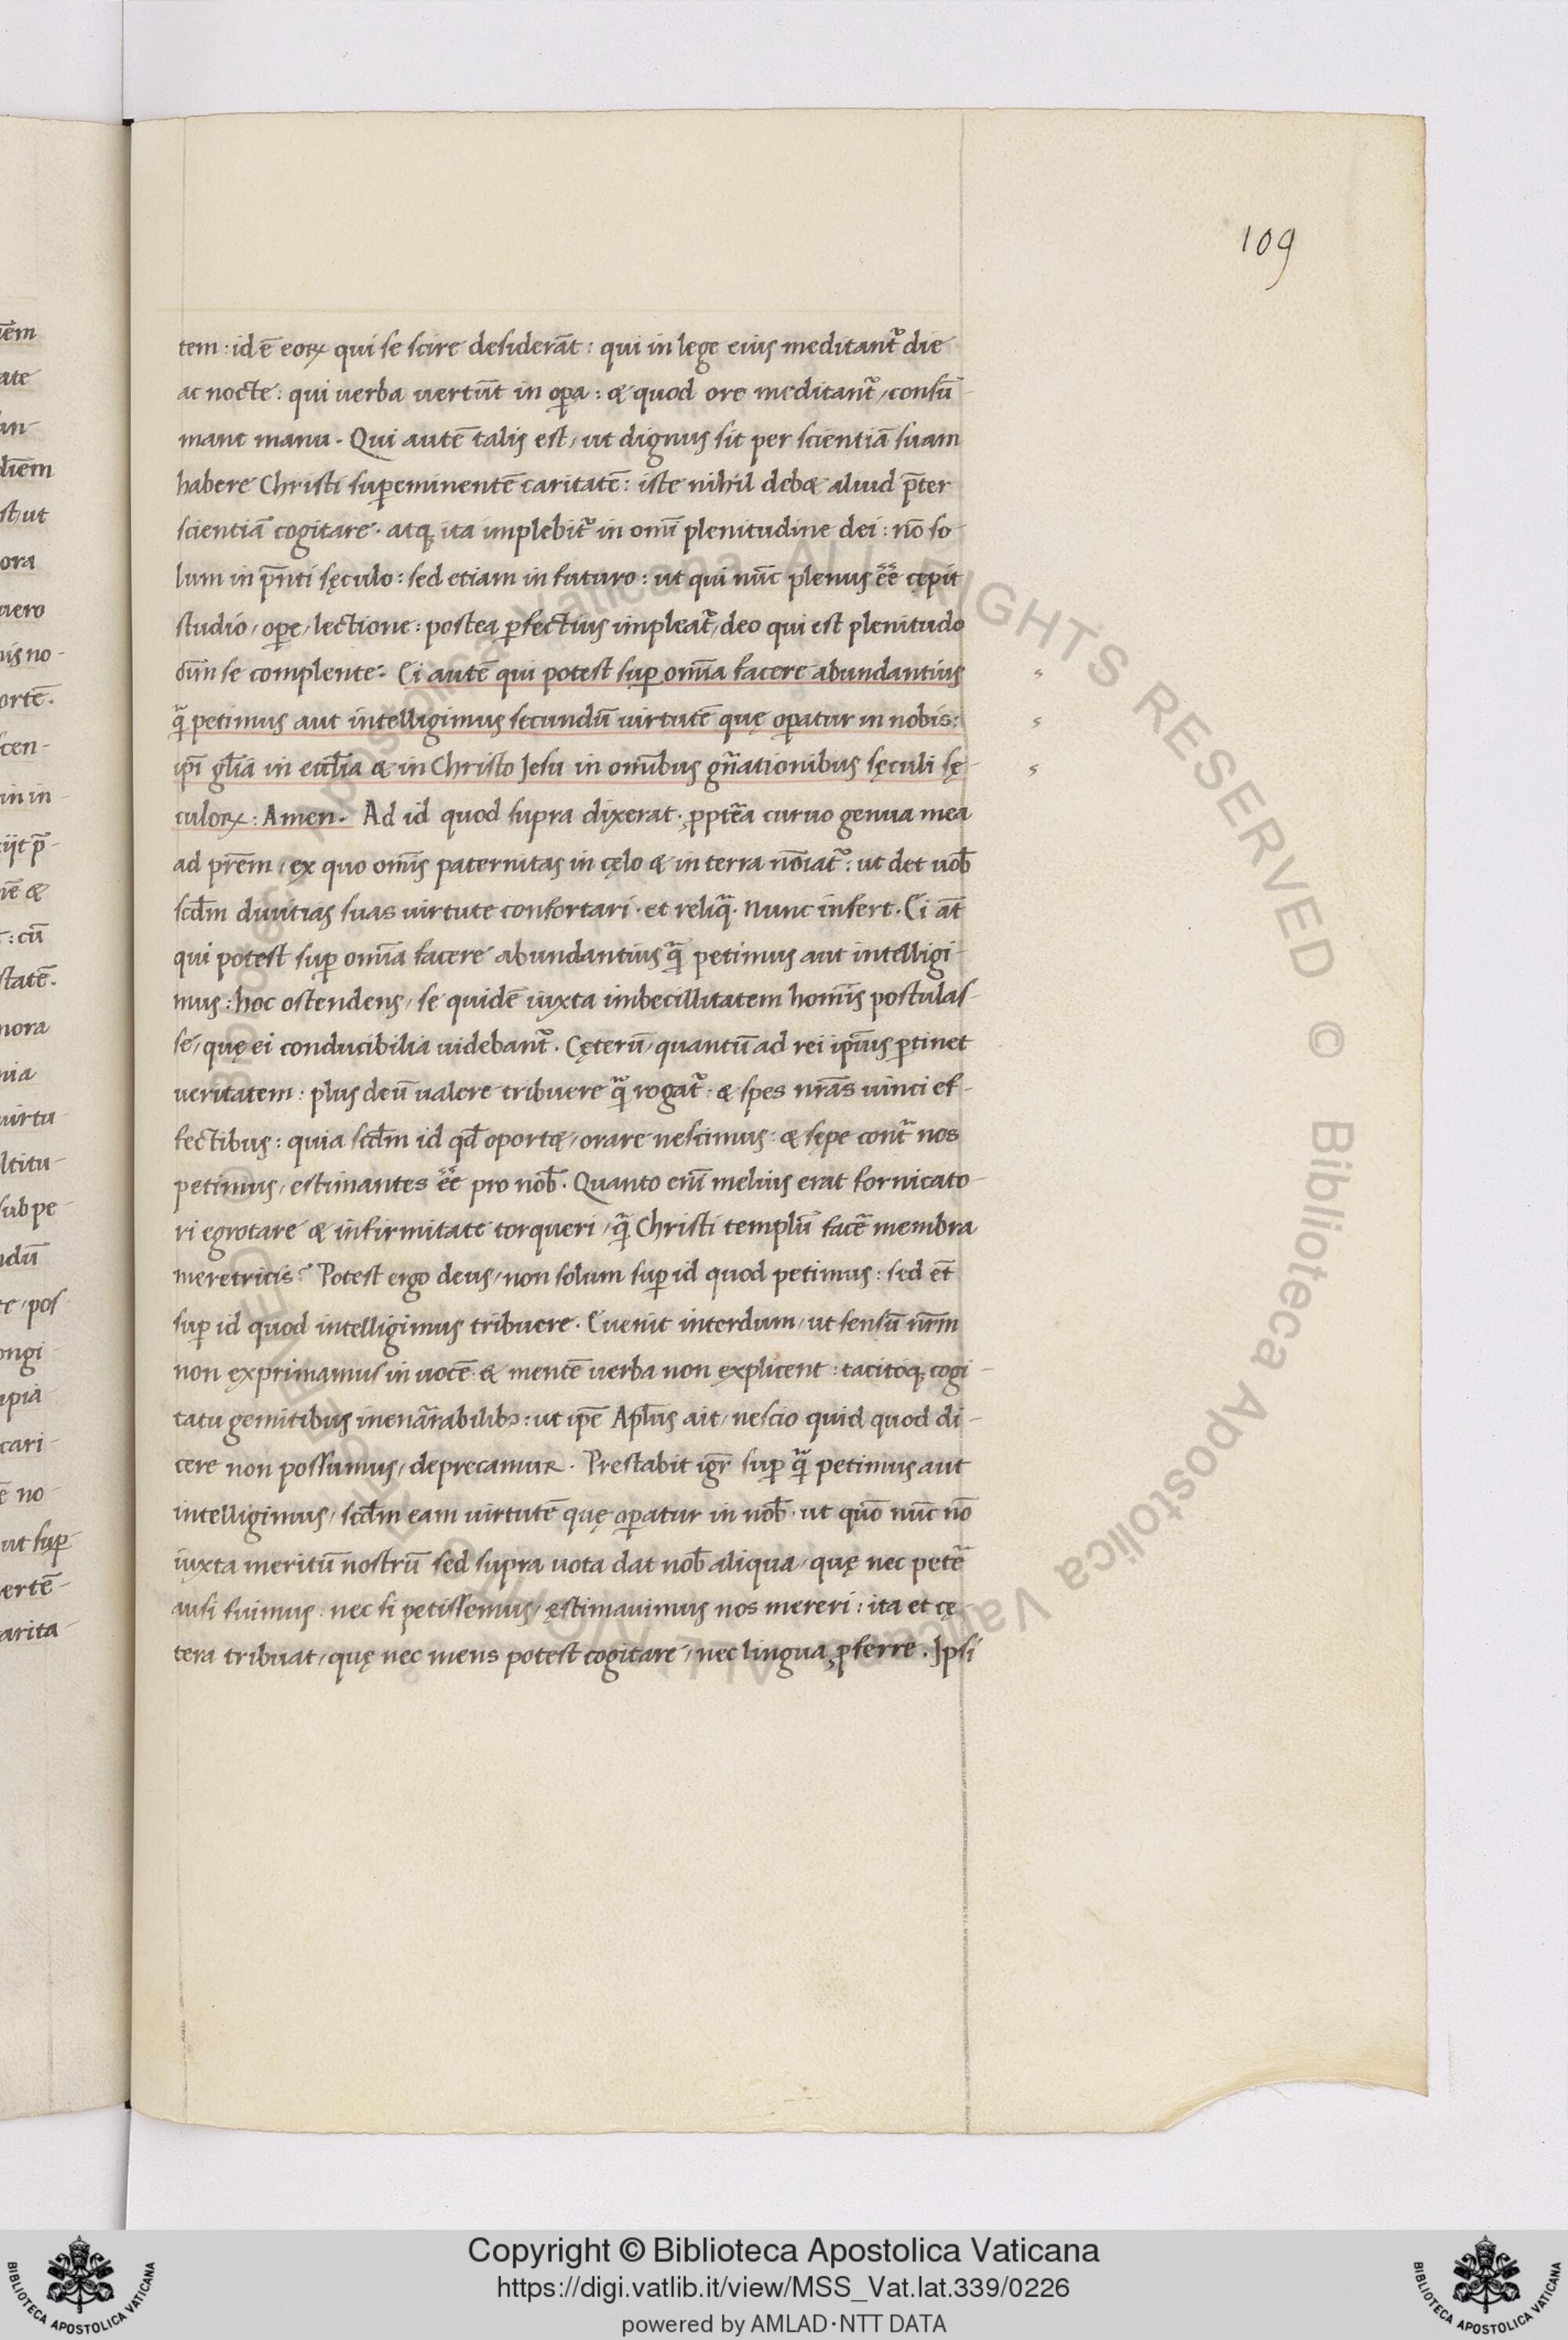 109
tem: id ē eoꝝ qui se scire desiderāt: qui in lege eius meditant᷑ die
ac nocte: qui uerba uertūt in oꝑa: & quod ore meditant᷑, consū-
mant manu. Qui autē talis est, ut dignus sit per scientiā suam
habere Christi suꝑeminentē caritatē: iste nihil deb& aliud p̄ter
scientiā cogitare. atq; ita implebit᷑ in omī plenitudine dei: nō so-
lum in p̄nti sęculo: sed etiam in futuro: ut qui nūc plenus eē cępit
studio, oꝑe, lectione: postea ꝑfectius impleat᷑, deo qui est plenitudo
oīm se complente. Ei autē qui potest suꝑ omīa facere abundantius
qᷓ petimus aut intelligimus secundū uirtutē quę oꝑatur in nobis:
ipī glīa in eccłia & in Christo Jesu in omībus gn̄ationibus sęculi sę-
culoꝝ: Amen. Ad id quod supra dixerat. ꝓptēa curuo genua mea
ad prēm, ex quo omīs paternitas in cęlo & in terra nōiat᷑: ut det uob̄
scdm̄ diuitias suas uirtute confortari. et reliqᷓ. Nunc infert. Ei āt
qui potest suꝑ omīa facere abundantius qᷓ petimus aut intelligi-
mus: hoc ostendens, se quidē iuxta imbecillitatem homīs postulas-
se, quę ei conducibilia uidebant᷑. Cęterū, quantū ad rei ipīus ꝑtinet
ueritatem: plus deū ualere tribuere qᷓ rogat᷑: & spes nr̄as uinci ef-
fectibus: quia scdm̄ id qd̄ oport&, orare nescimus: & sępe cont᷑ nos
petimus, estimantes eē pro nob̄. Quanto enī melius erat fornicato-
ri egrotare & infirmitate torqueri, qᷓ Christi templū facē membra
meretricis? Potest ergo deus, non solum suꝑ id quod petimus: sed et̄
suꝑ id quod intelligimus tribuere. Euenit interdum, ut sensū nr̄m
non exprimamus in uocē: & mentē uerba non explicent: tacitoq; cogi-
tatu gemitibus inenarrabilibꝰ: ut ip̄e Apłus ait, nescio quid quod di-
cere non possumus, deprecamur. Prestabit igr̄ suꝑ qᷓ petimus aut
intelligimus, scdm̄ eam uirtutē quę oꝑatur in nob̄. ut quō nūc nō
iuxta meritū nostrū sed supra uota dat nob̄ aliqua, quę nec petē
ausi fuimus: nec si petissemus, ęstimauimus nos mereri: ita et cę-
tera tribuat, quę nec mens potest cogitare, nec lingua ꝓferre. Ipsi
Copyright © Biblioteca Apostolica Vaticana
https://digi.vatlib.it/view/MSS_Vat.lat.339/0226
powered by AMLAD·NTT DATA